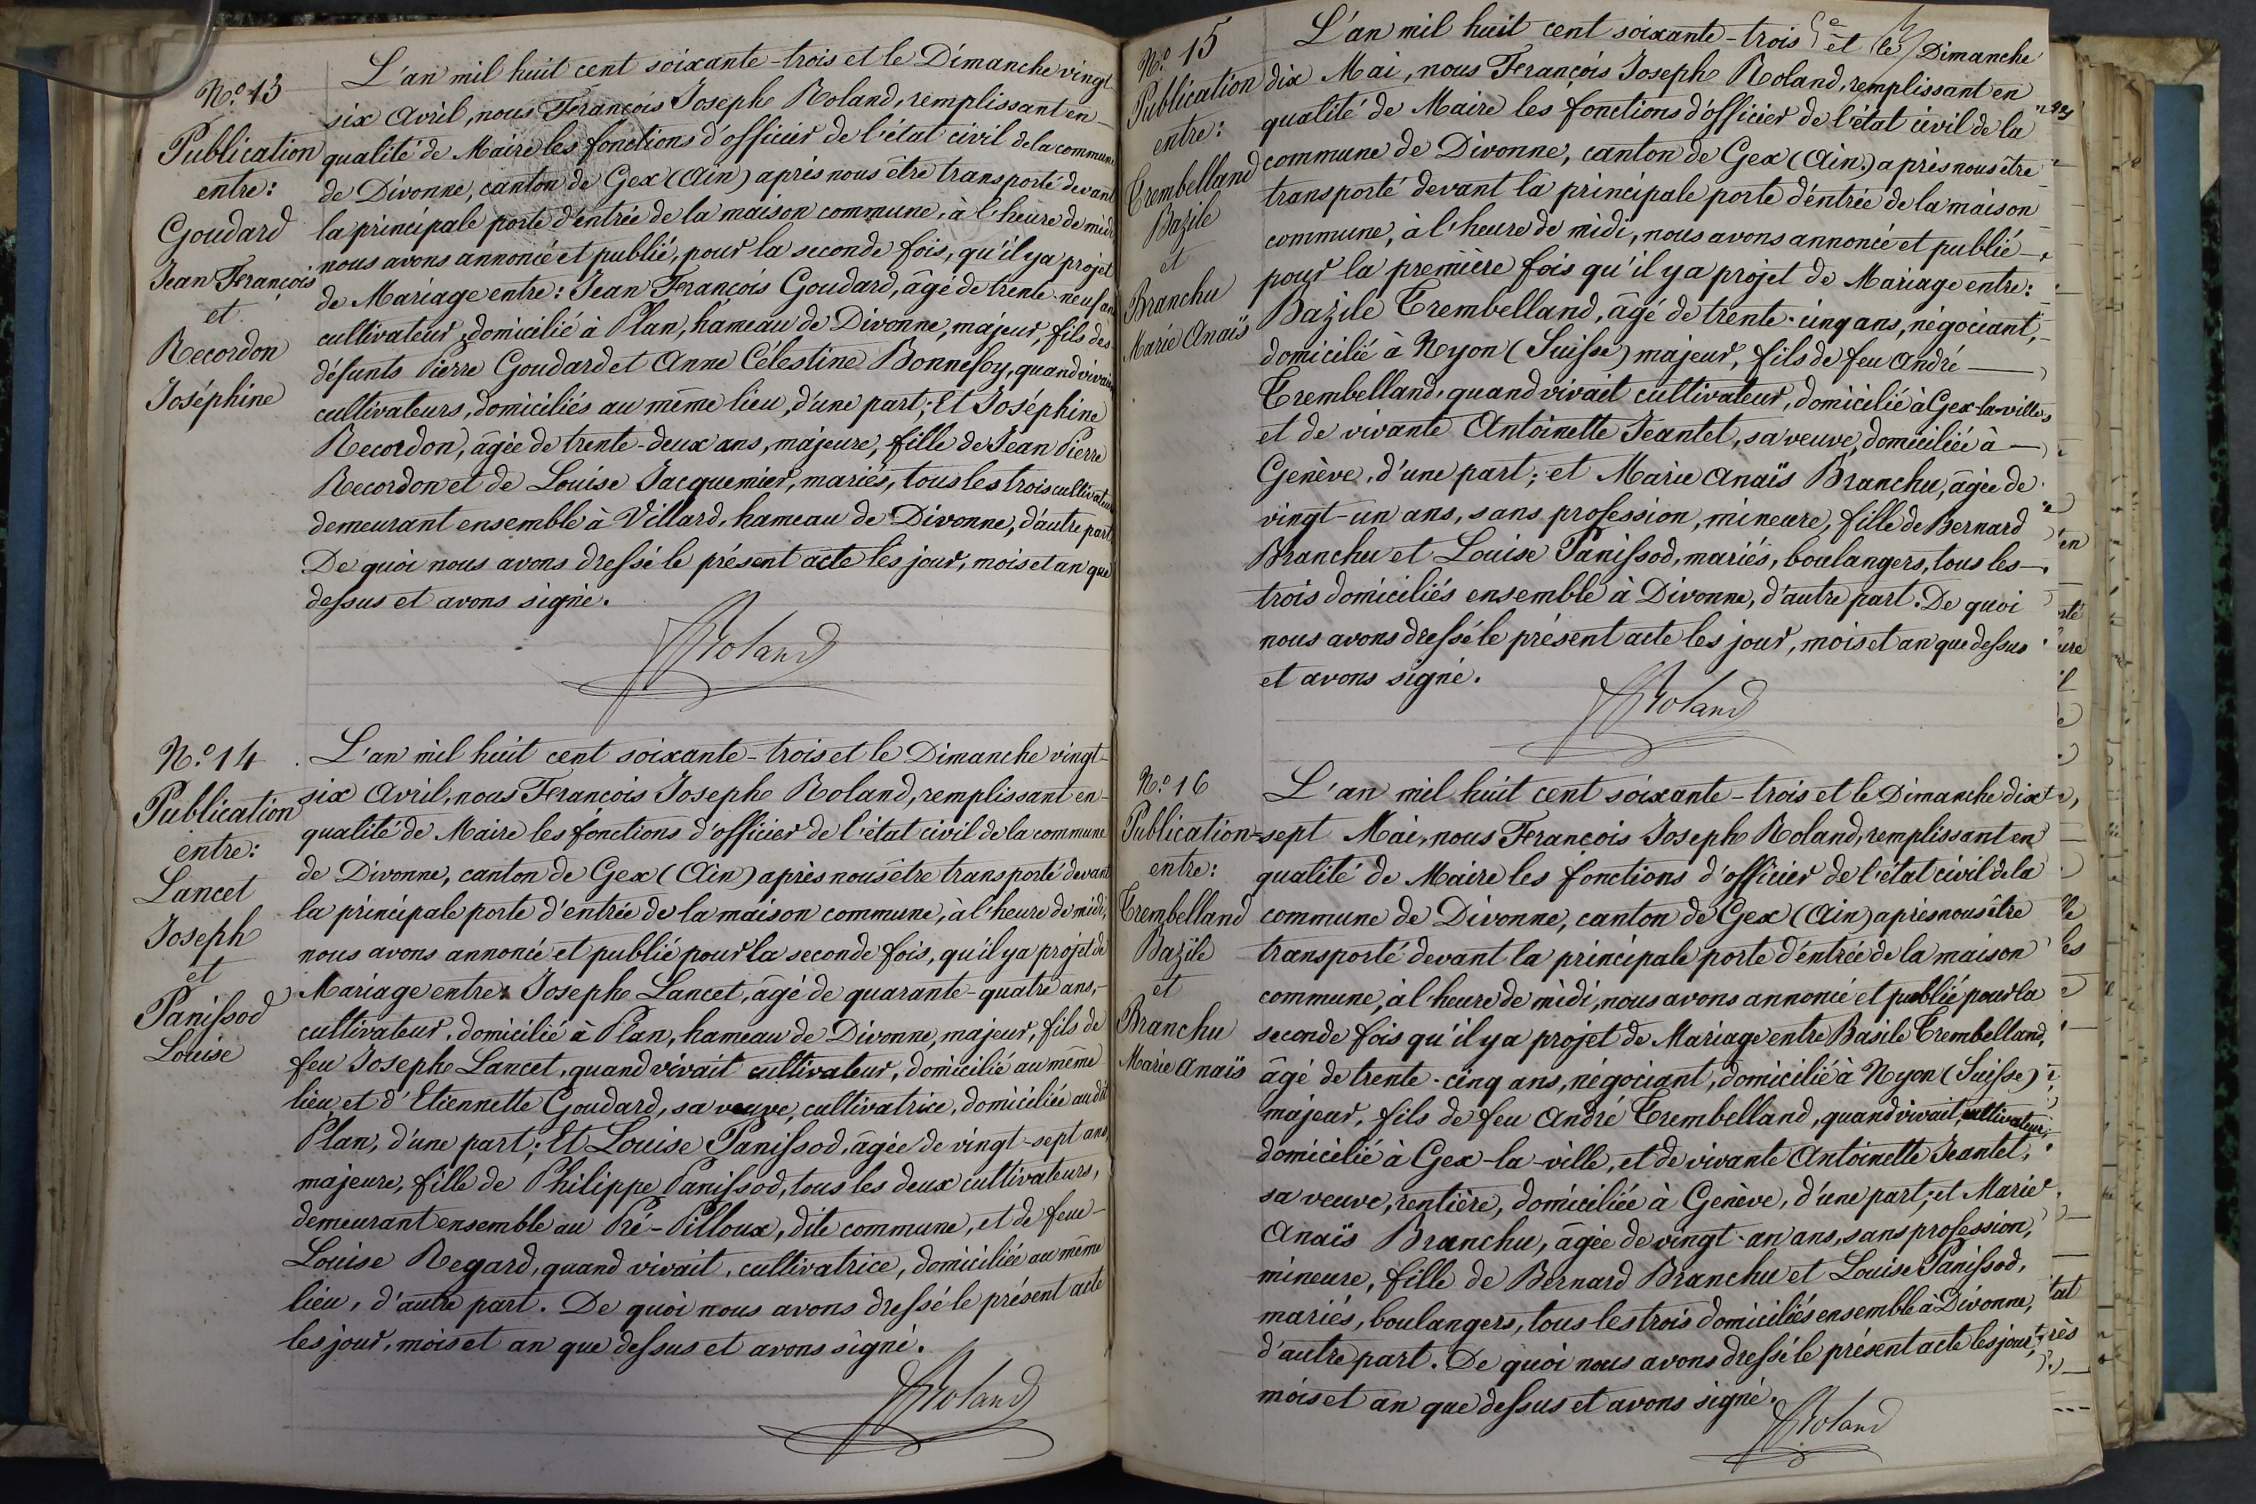 N.º 13
Publication
entre:
Goudard
Jean François
et
Recordon
Joséphine
L'an mil huit cent soixante-trois et le Dimanche vingt
six Avril, nous François Joseph Roland, remplissant en
qualité de Maire les fonctions d'officier de l'état civil de la commune
de Divonne, canton de Gex (Ain) après nous être transporté devant
la principale porte d'entrée de la maison commune, à l'heure de midi
nous avons annoncé et publié, pour la seconde fois, qu'il y a projet
de Mariage entre: Jean François Goudard, âgé de trente-neuf ans
cultivateur, domicilié à Plan, hameau de Divonne, majeur, fils des
défunts Pierre Goudard et Anne Célestine Bonnefoy, quand vivaient
cultivateurs, domiciliés au même lieu, d'une part; Et Joséphine
Recordon, âgée de trente-deux ans, majeure, fille de Jean Pierre
Recordon et de Louise Jacquemier, mariés, tous les trois cultivateurs
demeurant ensemble à Villard, hameau de Divonne, d'autre part
De quoi nous avons dressé le présent acte les jour, mois et an que
dessus et avons signé.
Roland
N.º 14
Publication
entre:
Lancet
Joseph
et
Panissod
Louise
L'an mil huit cent soixante-trois et le Dimanche vingt-
six Avril, nous François Joseph Roland, remplissant en-
qualité de Maire les fonctions d'officier de l'état civil de la commune
de Divonne, canton de Gex (Ain) après nous être transporté devant
la principale porte d'entrée de la maison commune, à l'heure de midi,
nous avons annoncé et publié pour la seconde fois, qu'il y a projet de
Mariage entre: Joseph Lancet, âgé de quarante-quatre ans,-
cultivateur, domicilié à Plan, hameau de Divonne, majeur, fils de
feu Joseph Lancet, quand vivait cultivateur, domicilié au même
lieu et d'Etiennette Goudard, sa veuve, cultivatrice, domiciliée au dit
Plan, d'une part; Et Louise Panissod, âgée de vingt-sept ans,
majeure, fille de Philippe Panissod, tous les deux cultivateurs,
demeurant ensemble au Pré-Pilloux, dite commune, et de feue-
Louise Regard, quand vivait, cultivatrice, domiciliée au même
lieu, d'autre part. De quoi nous avons dressé le présent acte
les jour, mois et an que dessus et avons signé.
Roland
N.º 15
Publication
entre:
Trembelland
Bazile
et
Branchu
Marie Anaïs
L'an mil huit cent soixante-trois et le Dimanche
dix Mai, nous François Joseph Roland, remplissant en
qualité de Maire les fonctions d'officier de l'état civil de la
commune de Divonne, canton de Gex (Ain) après nous être
transporté devant la principale porte d'entrée de la maison
commune, à l'heure de midi, nous avons annoncé et publié
pour la première fois qu'il y a projet de Mariage entre:
Bazile Trembelland, âgé de trente-cinq ans, négociant,
domicilié à Nyon (Suisse) majeur, fils de feu André
Trembelland, quand vivait cultivateur, domicilié à Gex-la-ville,
et de vivante Antoinette Jeantet, sa veuve, domiciliée à
Genève, d'une part; et Marie Anaïs Branchu, âgée de
vingt-un ans, sans profession, mineure, fille de Bernard
Branchu et Louise Panissod, mariés, boulangers, tous les
trois domiciliés ensemble à Divonne, d'autre part. De quoi
nous avons dressé le présent acte les jour, mois et an que dessus
et avons signé.
Roland
N.º 16
Publication
entre:
Trembelland
Bazile
et
Branchu
Marie Anaïs
L'an mil huit cent soixante-trois et le Dimanche dix
-sept Mai, nous François Joseph Roland, remplissant en
qualité de Maire les fonctions d'officier de l'état civil de la
commune de Divonne, canton de Gex (Ain) après nous être
transporté devant la principale porte d'entrée de la maison
commune, à l'heure de midi, nous avons annoncé et publié pour la
seconde fois qu'il y a projet de Mariage entre Basile Trembelland,
âgé de trente-cinq ans, négociant, domicilié à Nyon (Suisse)
majeur, fils de feu André Trembelland, quand vivait, cultivateur,
domicilié à Gex-la-ville, et de vivante Antoinette Jeantet,
sa veuve, rentière, domiciliée à Genève, d'une part; et Marie
Anaïs Branchu, âgée de vingt-un ans, sans profession,
mineure, fille de Bernard Branchu et Louise Panissod,
mariés, boulangers, tous les trois domiciliés ensemble à Divonne,
d'autre part. De quoi nous avons dressé le présent acte les jour,
mois et an que dessus et avons signé.
Roland